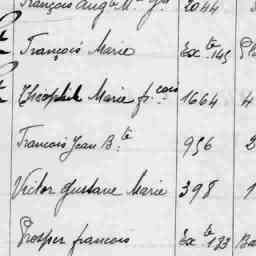 François Aug.te M.ie Jph 2044
François Marie Ex.te 145
Théophile Marie fr.çois 1664 4
François Jean B.te 956 2
Victor Gustave Marie 398 1
Prosper françois Ex.te 123 Ba